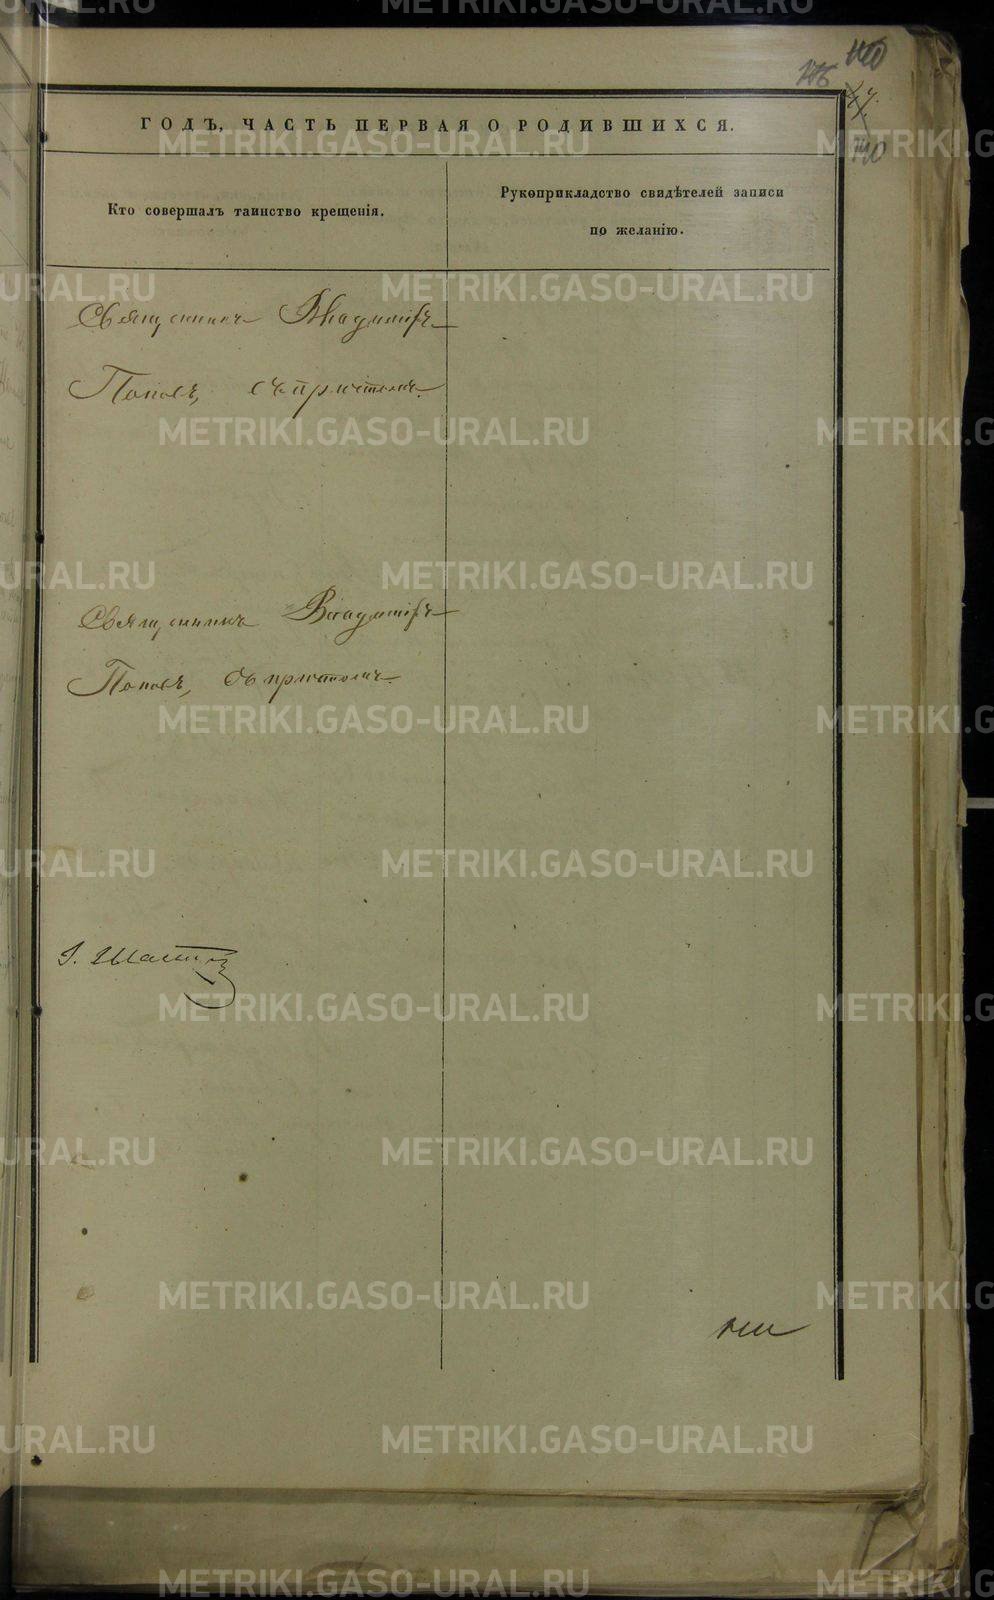 140
ГОДЪ, ЧАСТЬ ПЕРВАЯ О РОДИВШИХСЯ.
Кто совершалъ таинство крещенія.
Рукоприкладство свидѣтелей записи
по желанію.
Священникъ Владиміръ
Поповъ, съ причтомъ.
Священникъ Владиміръ
Поповъ, съ причтомъ.
METRIKI.GASO-URAL.RU